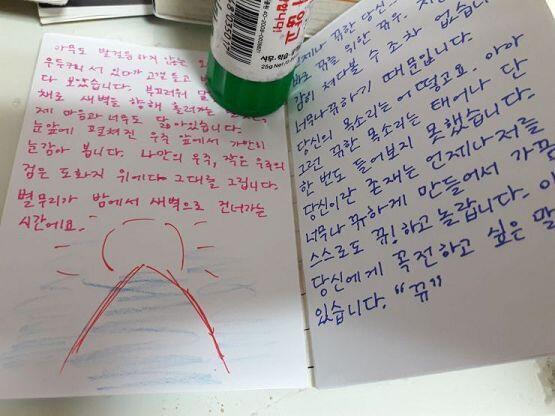 아무도 발걸음하지 않는
우두커니 서 있다가 고갤 들고
다 보았습니다. 부끄러워
채로 새벽을 향해 흘러가는
제 마음과 너무도 닮아있습니다.
눈앞에 펼쳐진 우주 앞에서 가만히
눈감아 봅니다. 나만의 우주, 작은 우주의
검은 도화지 위에다 그대를 그립니다.
별무리가 밤에서 새벽으로 건너가는
시간에요.
않고
25g Net
언제나 뀨한 당신
바로 뀨를 위한 뀨우.
감히 쳐다볼 수조차 없습니
너무나 뀨하기 때문입니다.
당신의 목소리는 어떻고요. 아아
그런 뀨한 목소리는 태어나 단
한 번도 들어보지 못했습니다.
당신이란 존재는 언제나 저를
너무나 뀨하게 만들어서 가끔
스스로도 뀨!하고 놀랍니다.
당신에게 꼭 전하고 싶은 말
있습니다. "뀨"